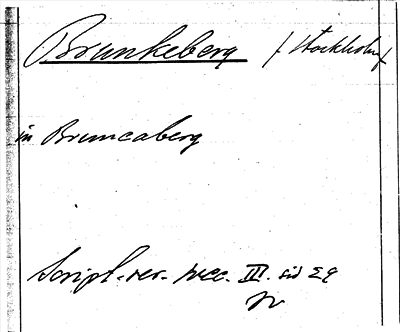 Brunkeberg / Stockholm /
in Bruncaberg
Script. rer. svec. III. sid 29